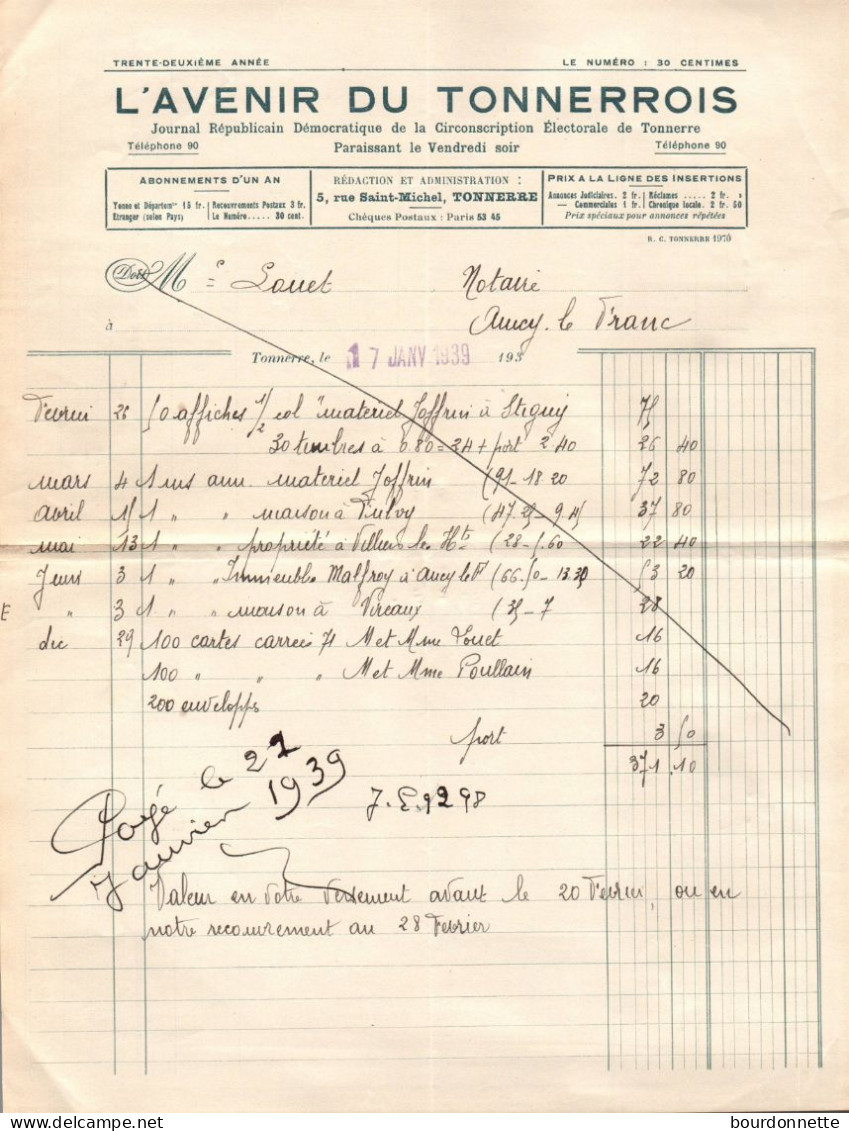 TRENTE-DEUXIÈME ANNÉE LE NUMÉRO : 30 CENTIMES
L'AVENIR DU TONNERROIS
Journal Républicain Démocratique de la Circonscription Électorale de Tonnerre
Téléphone 90 Paraissant le Vendredi soir Téléphone 90
ABONNEMENTS D'UN AN
Yonne et Départem^ts 15 fr.
Etranger (selon Pays)
Recouvrements Postaux 3 fr.
Le Numéro ..... 30 cent.
RÉDACTION ET ADMINISTRATION :
5, rue Saint-Michel, TONNERRE
Chèques Postaux : Paris 53 45
PRIX A LA LIGNE DES INSERTIONS
Annonces Judiciaires. 2 fr.
— Commerciales 1 fr.
Réclames ..... 2 fr. »
Chronique locale. 2 fr. 50
Prix spéciaux pour annonces répétées
R. C. TONNERRE 1970
Doit M^e Louet Notaire
à Ancy le Franc
Tonnerre, le 17 JANV 1939 193
Février 26 50 affiches 1/2 col "materiel Joffrin à Stigny 75
30 timbres à 0.80 = 24 + port 2 40 26 40
mars 4 1 ins ann. materiel Joffrin (91 - 18 20 72 80
avril 15 1 " " maison à Fulvy (47.25 - 9 45 37 80
mai 13 1 " " propriété à Villiers les Hts (28 - 5.60 22 40
Juin 3 1 " " Immeubles Malfroy à Ancy le F (66.50 - 13.30 53 20
" 3 1 " " maison à Vireaux (35 - 7 28
E
dec 29 100 cartes carrées 71 M et Mme Louet 16
100 " " " M et Mme Poullain 16
200 envelopps 20
port 3 50
371.10
Payé le 27
Janvier 1939
J. E. 92 98
Valeur en votre versement avant le 20 Février, ou en
notre recouvrement au 28 Février
bourdonnette